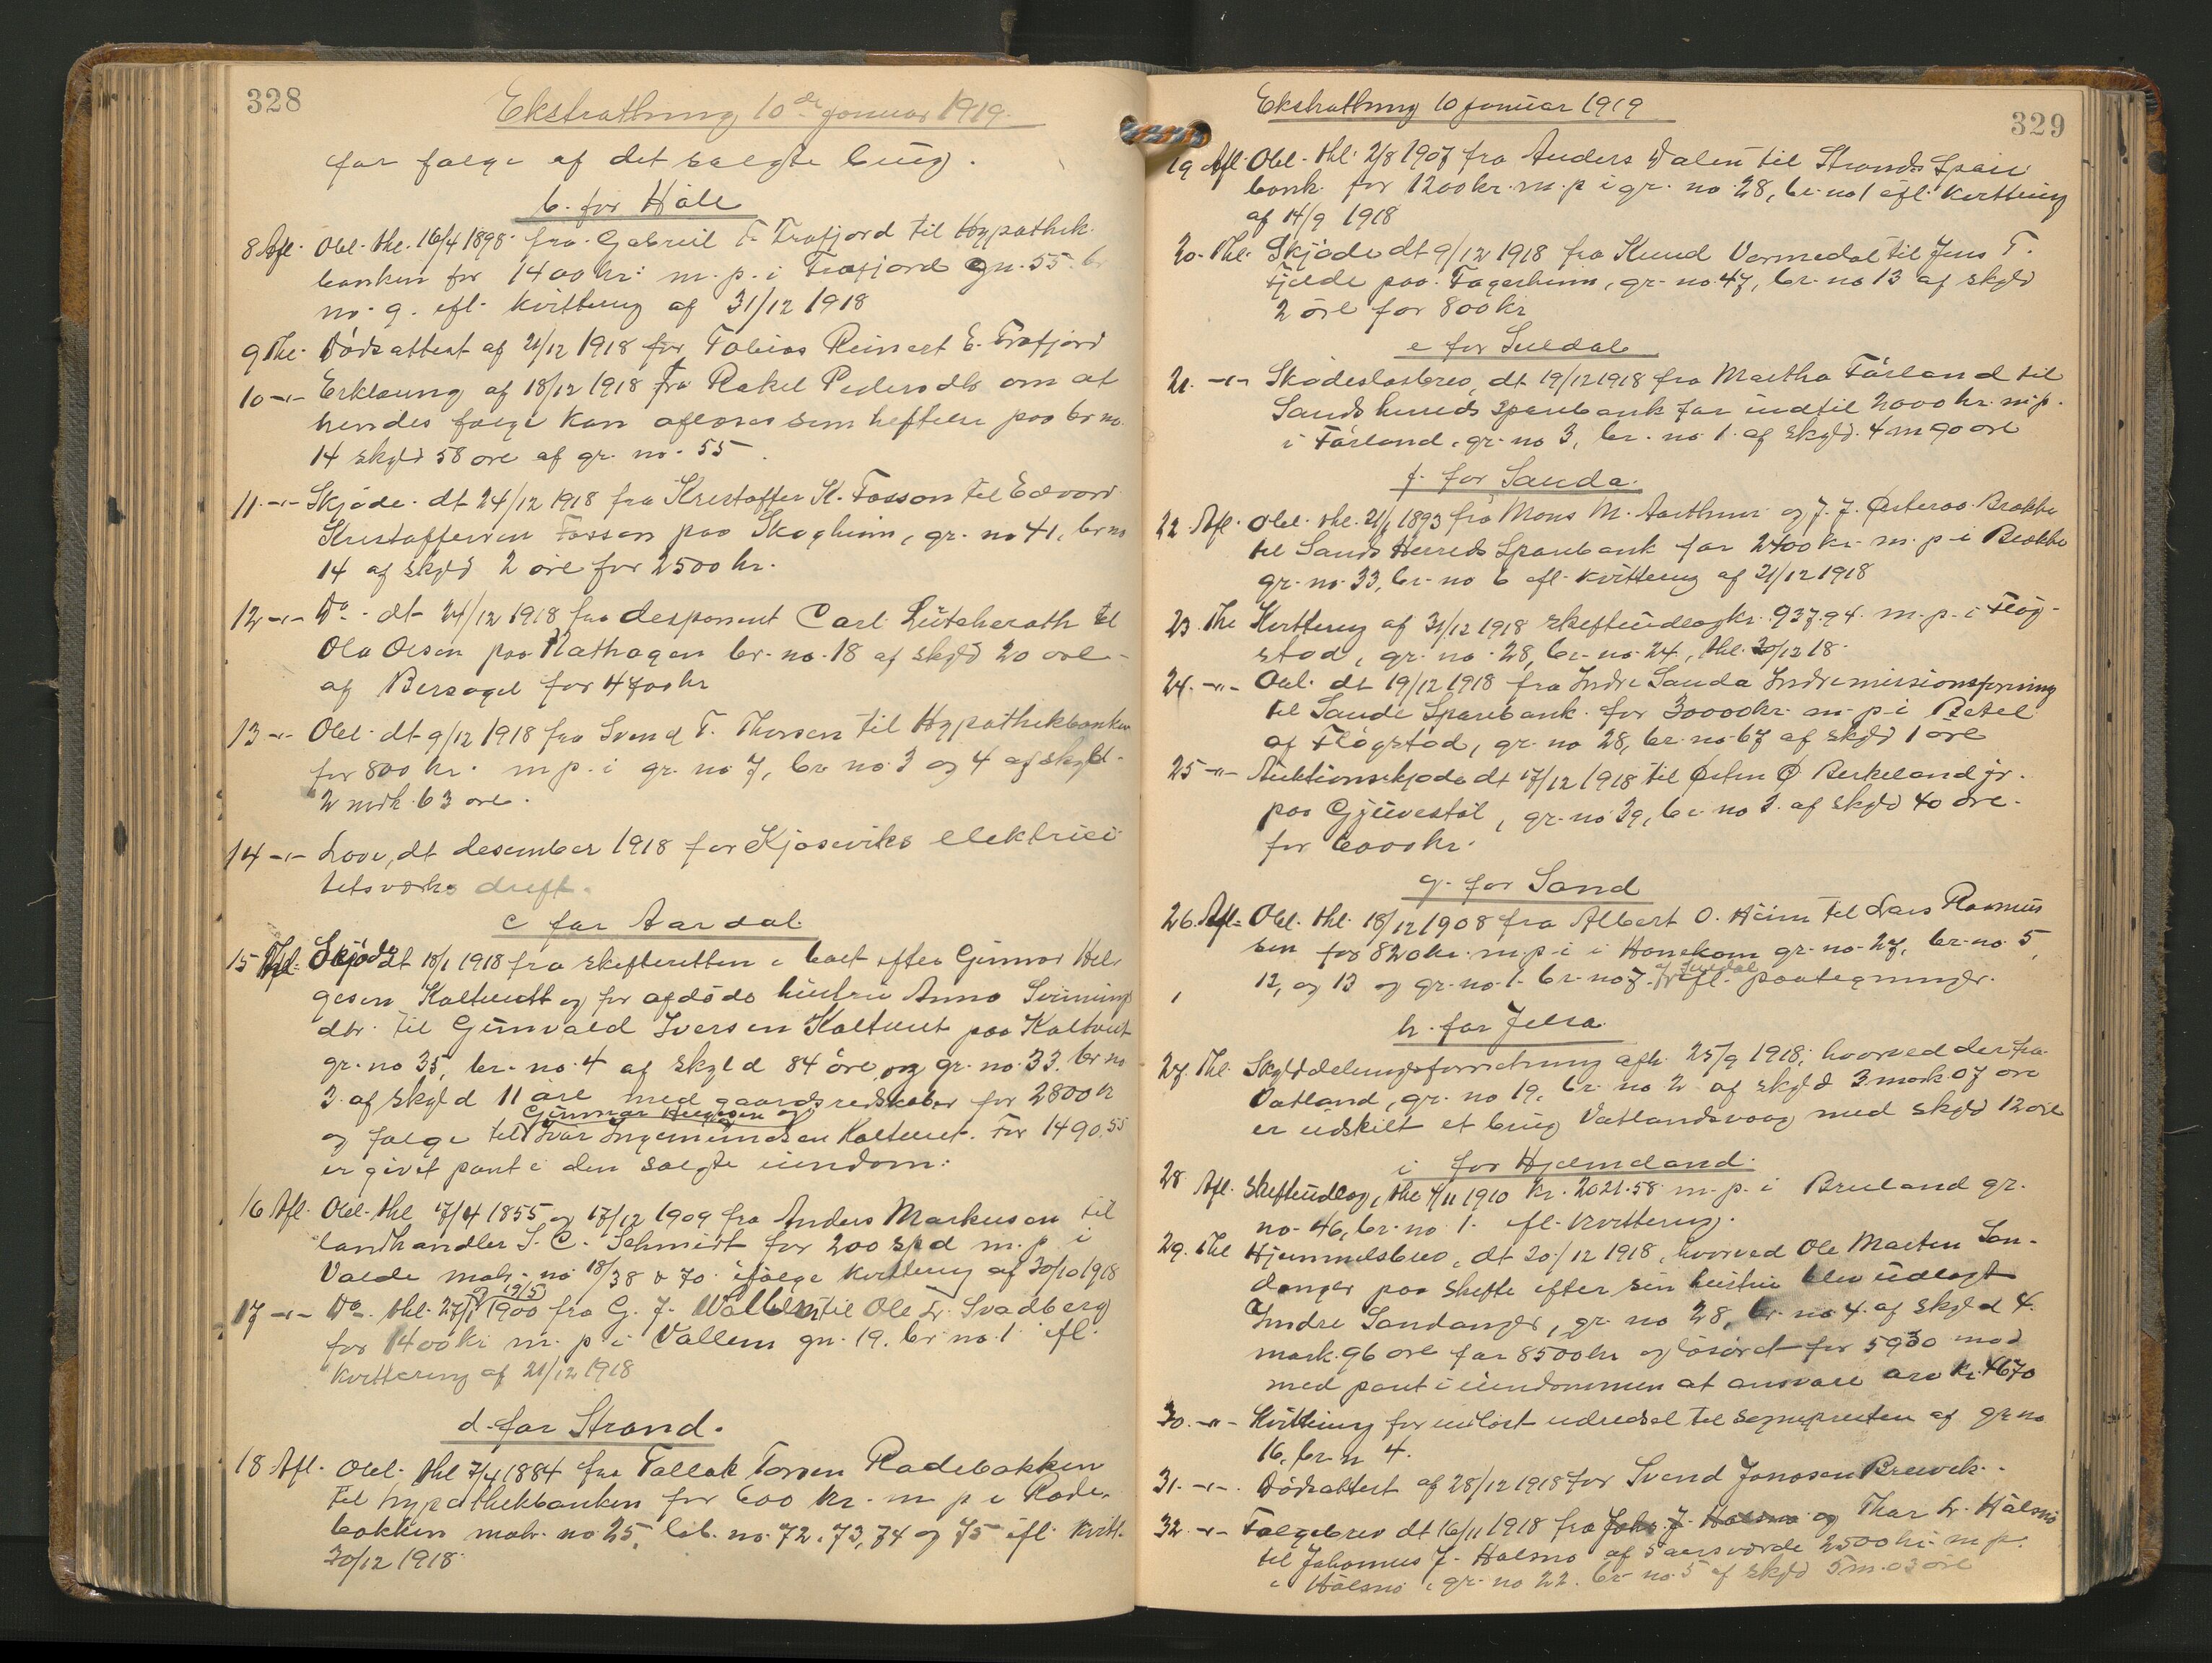 328
Ekstrathing 10de januar 1919.
for følge af det solgte brug.
b. for Håle
8 Afl. Obl. thl. 16/4 1898 fra Gabriel T. Frafjord til Hypothek-
banken for 1400 kr. m. p. i Frafjord gn. 55. br
no. 9. ifl. kvittering af 31/12 1918
9 Thl. Dødsattest af 21/12 1918 for Tobias Reinert E. Frafjord
10 -"- Erklæring af 18/12 1918 fra Rakel Pedersdtr om at
hendes følge kan aflæses som heftelse paa br no.
14 skyld 58 øre af gr. no. 55.
11. -"- Skjøde dt 24/12 1918 fra Kristoffer K. Fossan til Edvard
Kristoffersen Fossan paa Skogheim, gr. no 41, br no
14 af skyld 2 øre for 2500 kr.
12 -"- Do. dt 24/12 1918 fra disponent Carl Lütcherath til
Ola Olsen paa Nathagen br. no. 18 af skyld 20 øre
af Bersagel for 4700 kr
13 -"- Obl. dt 9/12 1918 fra Svend T. Thorsen til Hypothekbanken
for 800 kr. m p. i gr. no 7, br no. 3 og 4 af skyld
2 mrk. 63 øre.
14 -"- Love, dt desember 1918 for Kjosviks elektrici-
tetsværks drift.
c for Aardal
15 Thl. Skjøde dt 18/1 1918 fra skifteretten i boet efter Gunnar Hel-
gesen Kaltveit og for afdøde hustru Anna Sveinungs
dtr. til Gunvald Iversen Kaltveit paa Kaltveit
gr. no 35, br. no. 4 af skyld 84 øre og gr. no. 33. br no
3. af skyld 11 øre med gaardsredskaber for 2800 kr
Gunnar Helgesen og
og følge til Ivar Ingemundsen Kaltveit. For 1490.55
er givet pant i den solgte eiendom:
16 Afl. Obl. thl 17/4 1855 og 17/12 1909 fra Anders Markusen til
landhandler S. C. Schmidt for 200 spd m. p i
Valde matr. no 18/38 & 70 ifølge kvittering af 30/10 1918
og 19/5
17 -"- Do. thl. 27/1 1900 fra G. J. Vallem til Ole L. Svadberg
for 1400 kr m. p i Vallem gn. 19. br no. 1 ifl.
kvittering af 21/12 1918
d. for Strand.
18 Afl. Obl. thl 7/4 1884 fra Tallak Torsen Rodebakken
til hypothekbanken for 600 kr. m p i Rode-
bakken matr. no 25, lb. no. 72, 73, 74 og 75 ifl. kvitt.
30/12 1918.
329
Ekstrathing 10 januar 1919
19 Afl. Obl. thl. 2/8 1907 fra Anders Dalen til Strands Spare
bank for 1200 kr. m. p i gr. no 28, br. no 1 ifl. kvittering
af 14/9 1918
20. Thl. Skjøde dt 9/12 1918 fra Knud Vormedal til Jens T.
Fjelde paa Fagerheim, gr. no. 47, br. no 13 af skyld
2 øre for 800 kr
e for Suldal
21. -"- Skadesløsbrev, dt 19/12 1918 fra Martha Fårland til
Sands herreds sparebank for indtil 2000 kr. m. p.
i Fårland, gr. no 3, br. no 1. af skyld. 4 m 90 øre
f. for Sauda.
22 Afl. Obl. thl. 21/1 1893 fra Mons M. Aarthun og J. J. Østeraa Brække
til Sands Herreds Sparebank for 2400 kr. m. p i Brække
gr. no. 33, br. no 6 ifl. kvittering af 21/12 1918
23. Thl Kvittering af 31/12 1918 skifteudlæg kr. 937.94. m. p. i Fløg-
stad, gr. no 28, br. no 24, thl. 20/12 18.
24. -"- Obl. dt 19/12 1918 fra Indre Sauda Indremissionsforening
til Saude Sparebank for 30000 kr. m. p i Betel
af Fløgstad, gr. no 28, br. no 67 af skyld 1 øre
25 -"- Auktionsskjøde dt 17/12 1918 til Østen Ø Birkeland jr.
paa Gjuvestøl, gr. no 39, br. no 3. af skyld 40 øre.
for 6000 kr.
g. for Sand
26. Afl. Obl. thl. 18/12 1908 fra Albert O. Heim til Lars Rasmus
sen for 820 kr. m. p. i i Honekom gr. no. 27, br. no 5,
12, og 13 og gr. no. 1. br. no 7. af Suldal ifl. paategninger.
h. for Jelsa.
27. Thl. Skylddelingsforretning afh. 25/9 1918, hvorved der fra
Vatland, gr. no 19, br. no 2 af skyld 3 mark 07 øre
er udskilt et brug Vatlandsvaag med skyld 12 øre
i for Hjelmeland.
28 Afl. Skifteudlæg, thl 4/11 1910 kr. 2021.58 m. p. i Bruland gr.
no. 46, br. no 1. ifl. kvittering.
29. Thl Hjemmelsbrev, dt 20/12 1918, hvorved Ole Marten San-
danger paa skifte efter sin hustru blev udlagt
Indre Sandanger, gr. no 28, br. no 4. af skyld 4.
mark. 96 øre for 8500 kr og løsøret for 5930 mod
med pant i eiendommen at ansvare arv kr. 4670
30. -"- Kvittering for indløst udredsel til sognepresten af gr no
16, br. n 4.
31. -"- Dødsattest af 28/12 1918 for Svend Jonasen Brevik.
32 -"- Følgebrev dt 16/11 1918 fra Johs. J. Halsno og Thor L. Hålsno
til Johannes J. Halsno af 5 aarsværde 2500 kr. m p.
i Hålsnø, gr. no 22. br no. 5 af skyld 5 m. 03 øre